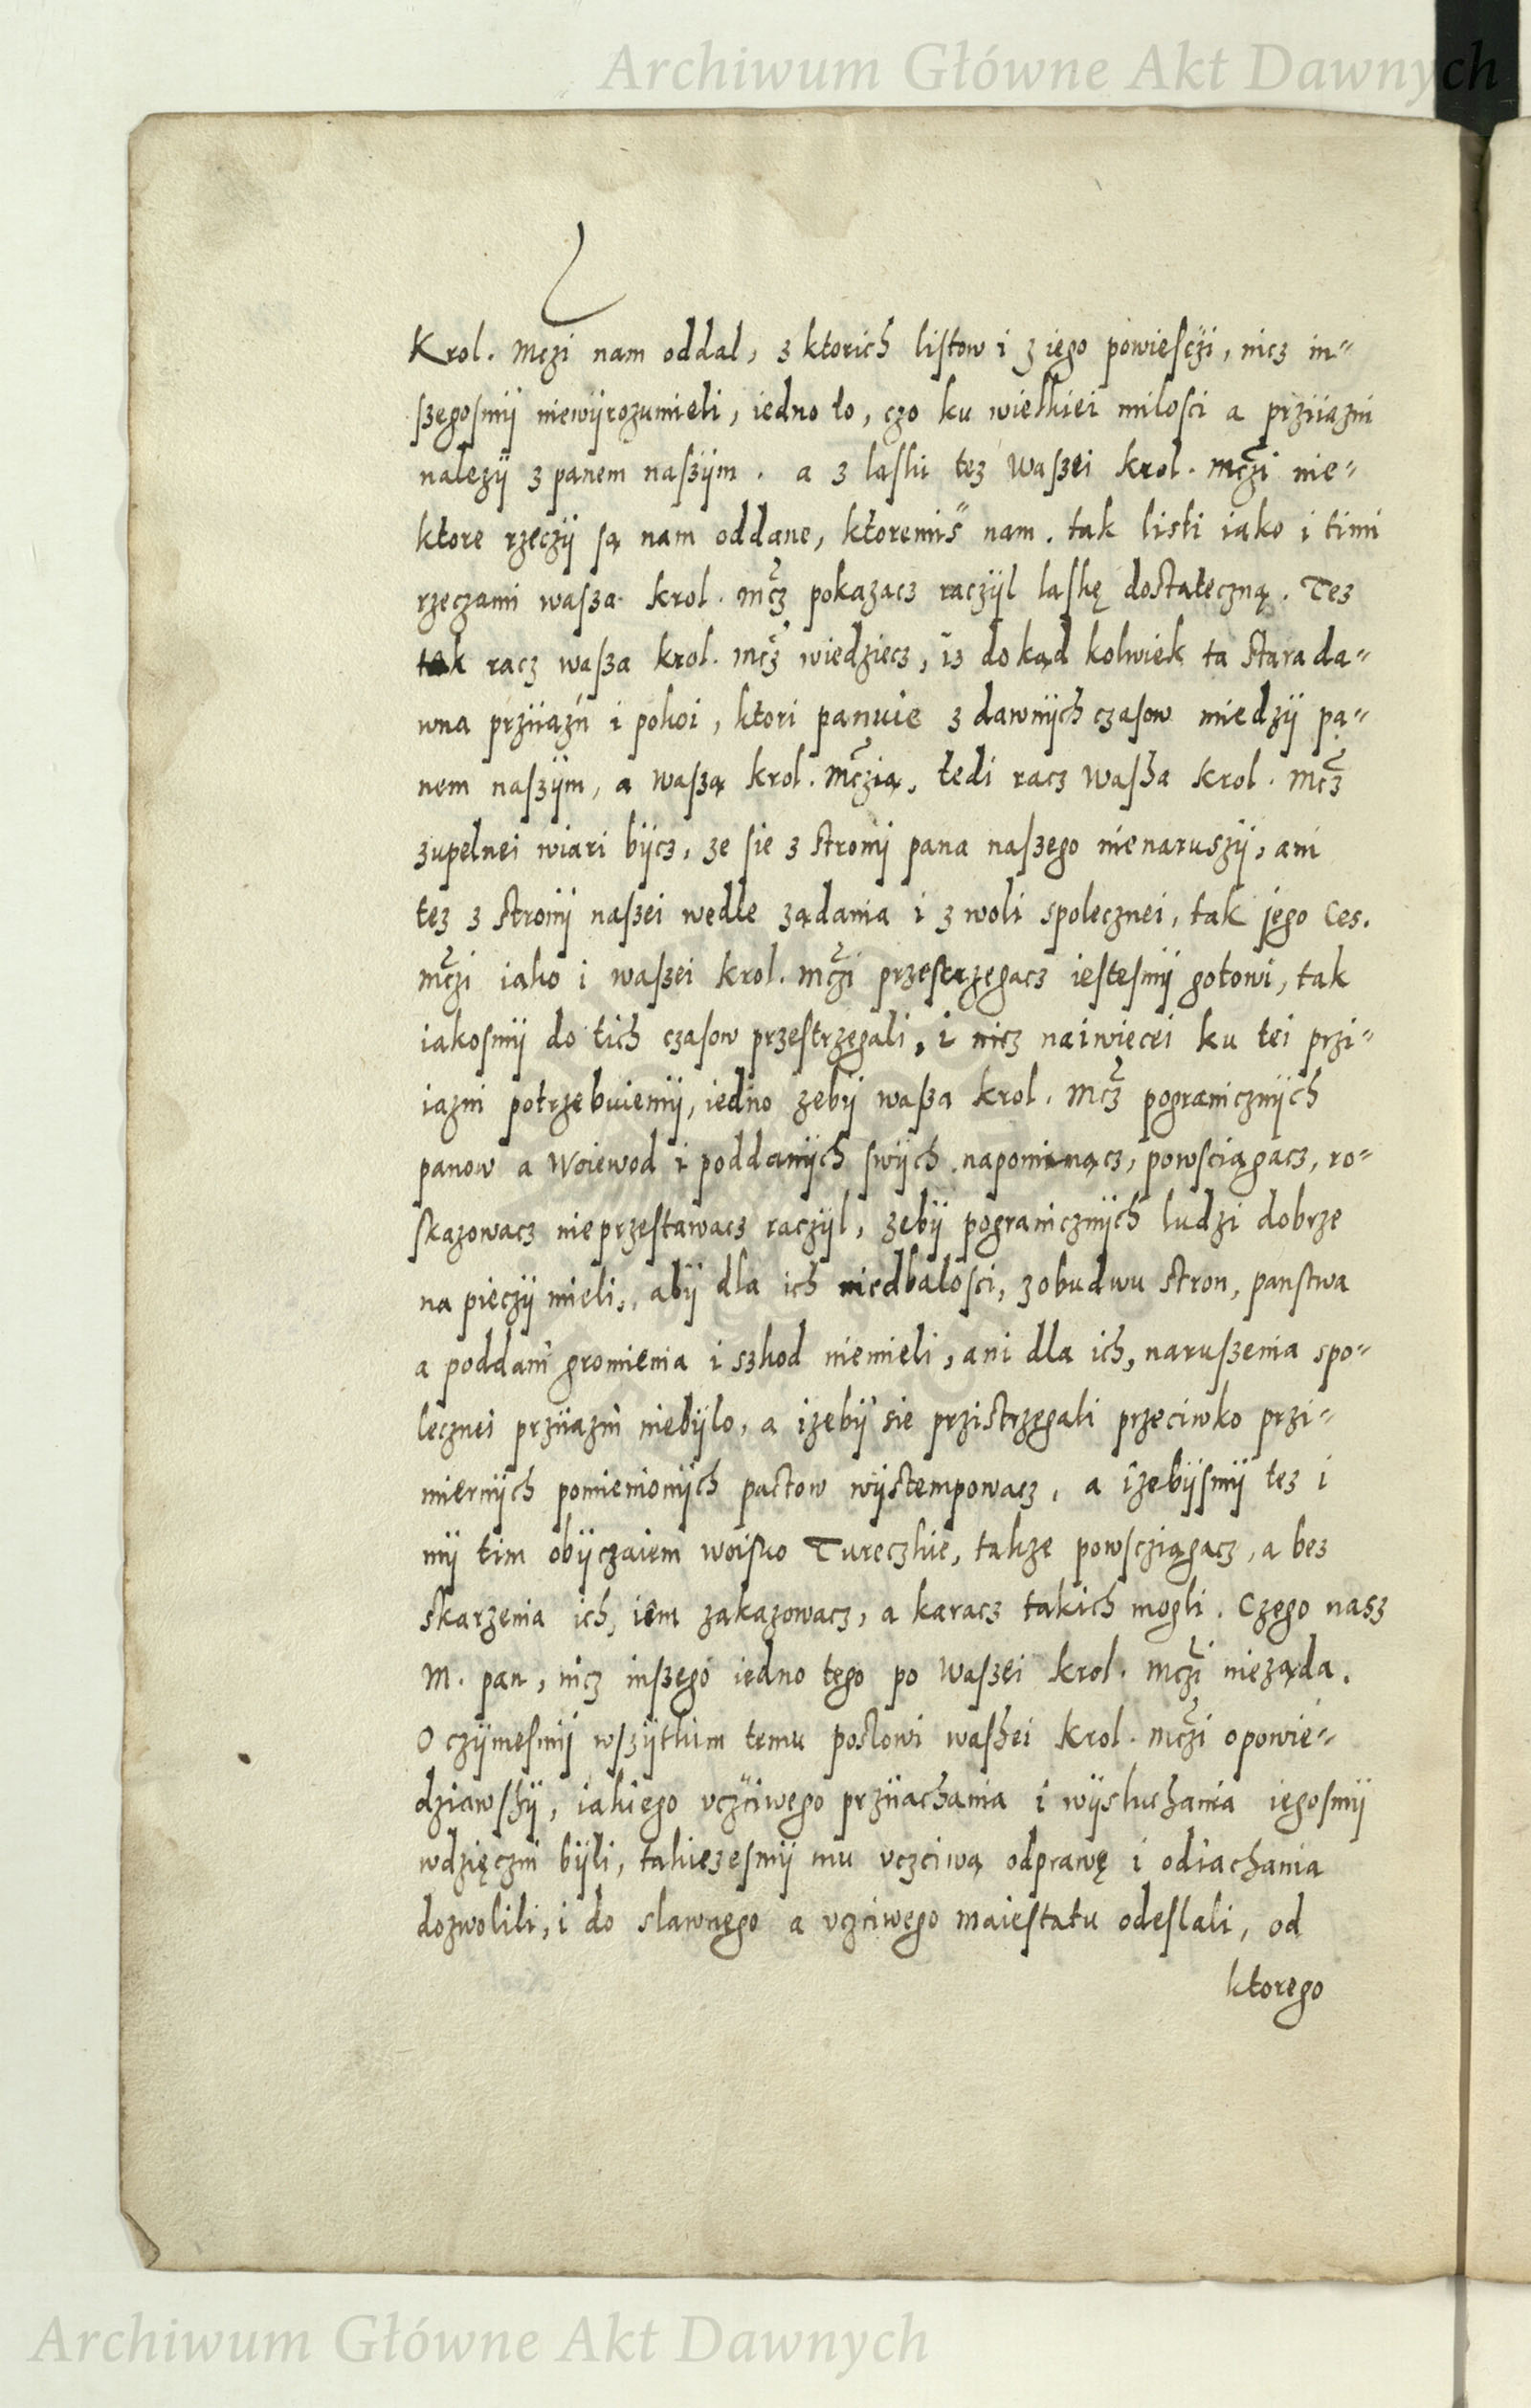 Archiwum Główne Akt Dawnych
Krol. Mczi nam oddal, z ktorich listow i z iego powiesczi, nicz in=
szegosmÿ niewÿrozumieli, iedno to, czo ku wielkiei milosci a prziiazni
nalezÿ z panem naszÿm. a z laski tez waszei krol. mczi nie=
ktore rzeczÿ są nam oddane, ktoremis nam. tak listi iako i timi
rzeczami wasza krol. mcz pokazacz raczÿl laskę dostateczną. Tez
tak racz wasza krol. mcz wiedziecz, iz do kąd kolwiek ta stara da=
wna prziiazń i pokoi, ktori panuie z dawnÿch czasow miedzÿ pa=
nem naszÿm, a waszą krol. mczią, tedi racz wasza krol. mcz
zupelnei wiari bÿcz, ze sie z stronÿ pana naszego nienaruszÿ, ani
tez z stronÿ naszei wedle ządania i z woli spolecznei, tak jego Ces.
mczi iako i waszei krol. mczi przestrzegacz iestesmÿ gotowi, tak
iakosmÿ do tich czasow przestrzegali, i nicz naiwięcei ku tei przi=
iazni potrzebuiemÿ, iedno zebÿ wasza krol. mcz pogranicznÿch
panow a woiewod i poddanÿch swÿch napominącz, powsciągacz, ro=
skazowacz nieprzestawacz raczÿl, zebÿ pogranicznÿch ludzi dobrze
na pieczÿ mieli, abÿ dla ich niedbalosci, z obudwu stron, panstwa
a poddani gromienia i szkod niemieli, ani dla ich, naruszenia spo=
lecznei prziiazni niebÿlo, a izebÿ sie przistrzegali przeciwko przi=
miernÿch pomienionÿch pactow wÿstempowacz, a izebÿsmÿ tez i
mÿ tim obÿczaiem woisko Tureczkie, takze powscziągacz, a bez
skarzenia ich, iem zakazowacz, a karacz takich mogli. Czego nasz
M. pan, nicz inszego iedno tego po waszei krol. mczi nieząda.
O czÿmesmÿ wszÿtkim temu poslowi waszei krol. mczi opowie=
dziawszÿ, iakiego vcziwego prziiachania i wÿsluchania iegosmÿ
wdzięczni bÿli, takiezesmÿ mu vczciwą odprawę i odiachania
dozwolili, i do slawnego a vcziwego maiestatu odeslali, od
ktorego
Archiwum Główne Akt Dawnych